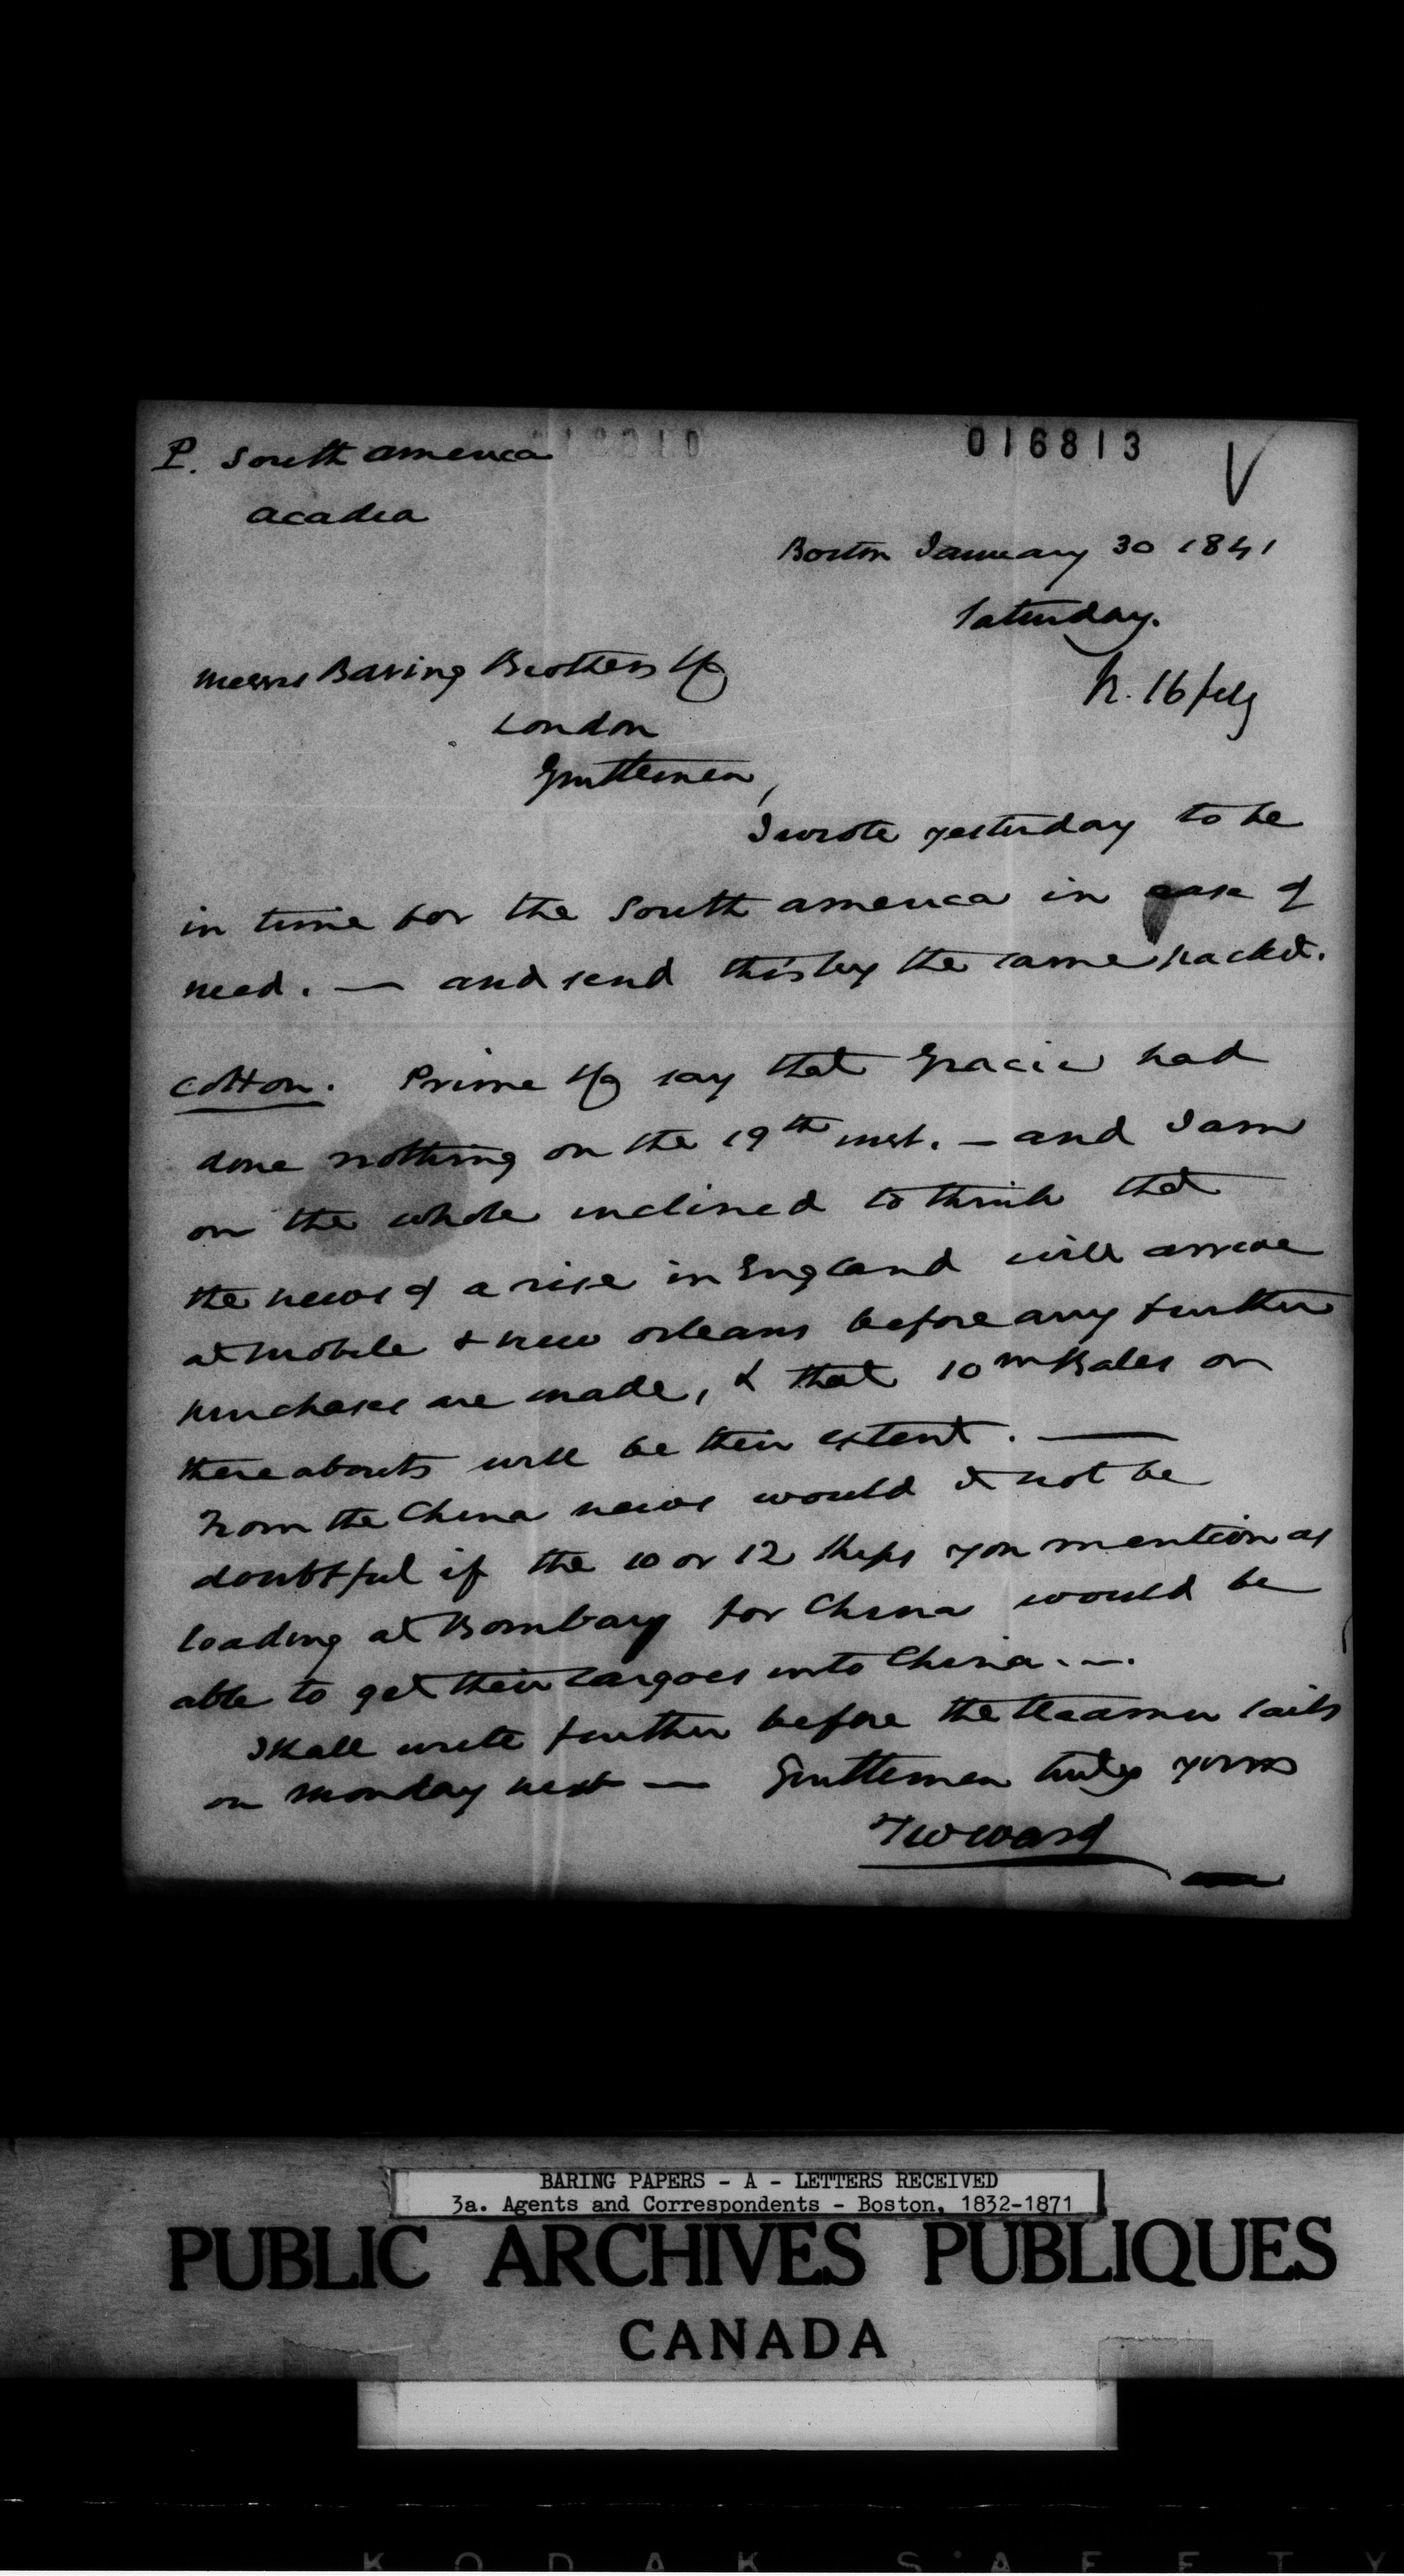 P. South America
016813
Acadia
Boston January 30 1841
Saturday.
Messrs Baring Brothers & Co
R. 16 feby
London
Gentlemen,
I wrote yesterday to be
in time for the South America in case of
need. — and send this by the same packet.
Cotton. Prime & Co say that Gracie had
done nothing on the 19th inst. — and I am
on the whole inclined to think that
the news of a rise in England will arrive
at Mobile & New Orleans before any further
purchases are made, & that 10 m Bales or
thereabouts will be their extent. —
From the China news would it not be
doubtful if the 10 or 12 ships you mention as
loading at Bombay for China would be
able to get their cargoes into China. —.
I shall write further before the steamer sails
on Monday next — Gentlemen truly yours
T W Ward
BARING PAPERS - A - LETTERS RECEIVED
3a. Agents and Correspondents - Boston, 1832-1871
PUBLIC ARCHIVES PUBLIQUES
CANADA
KODAK SAFETY